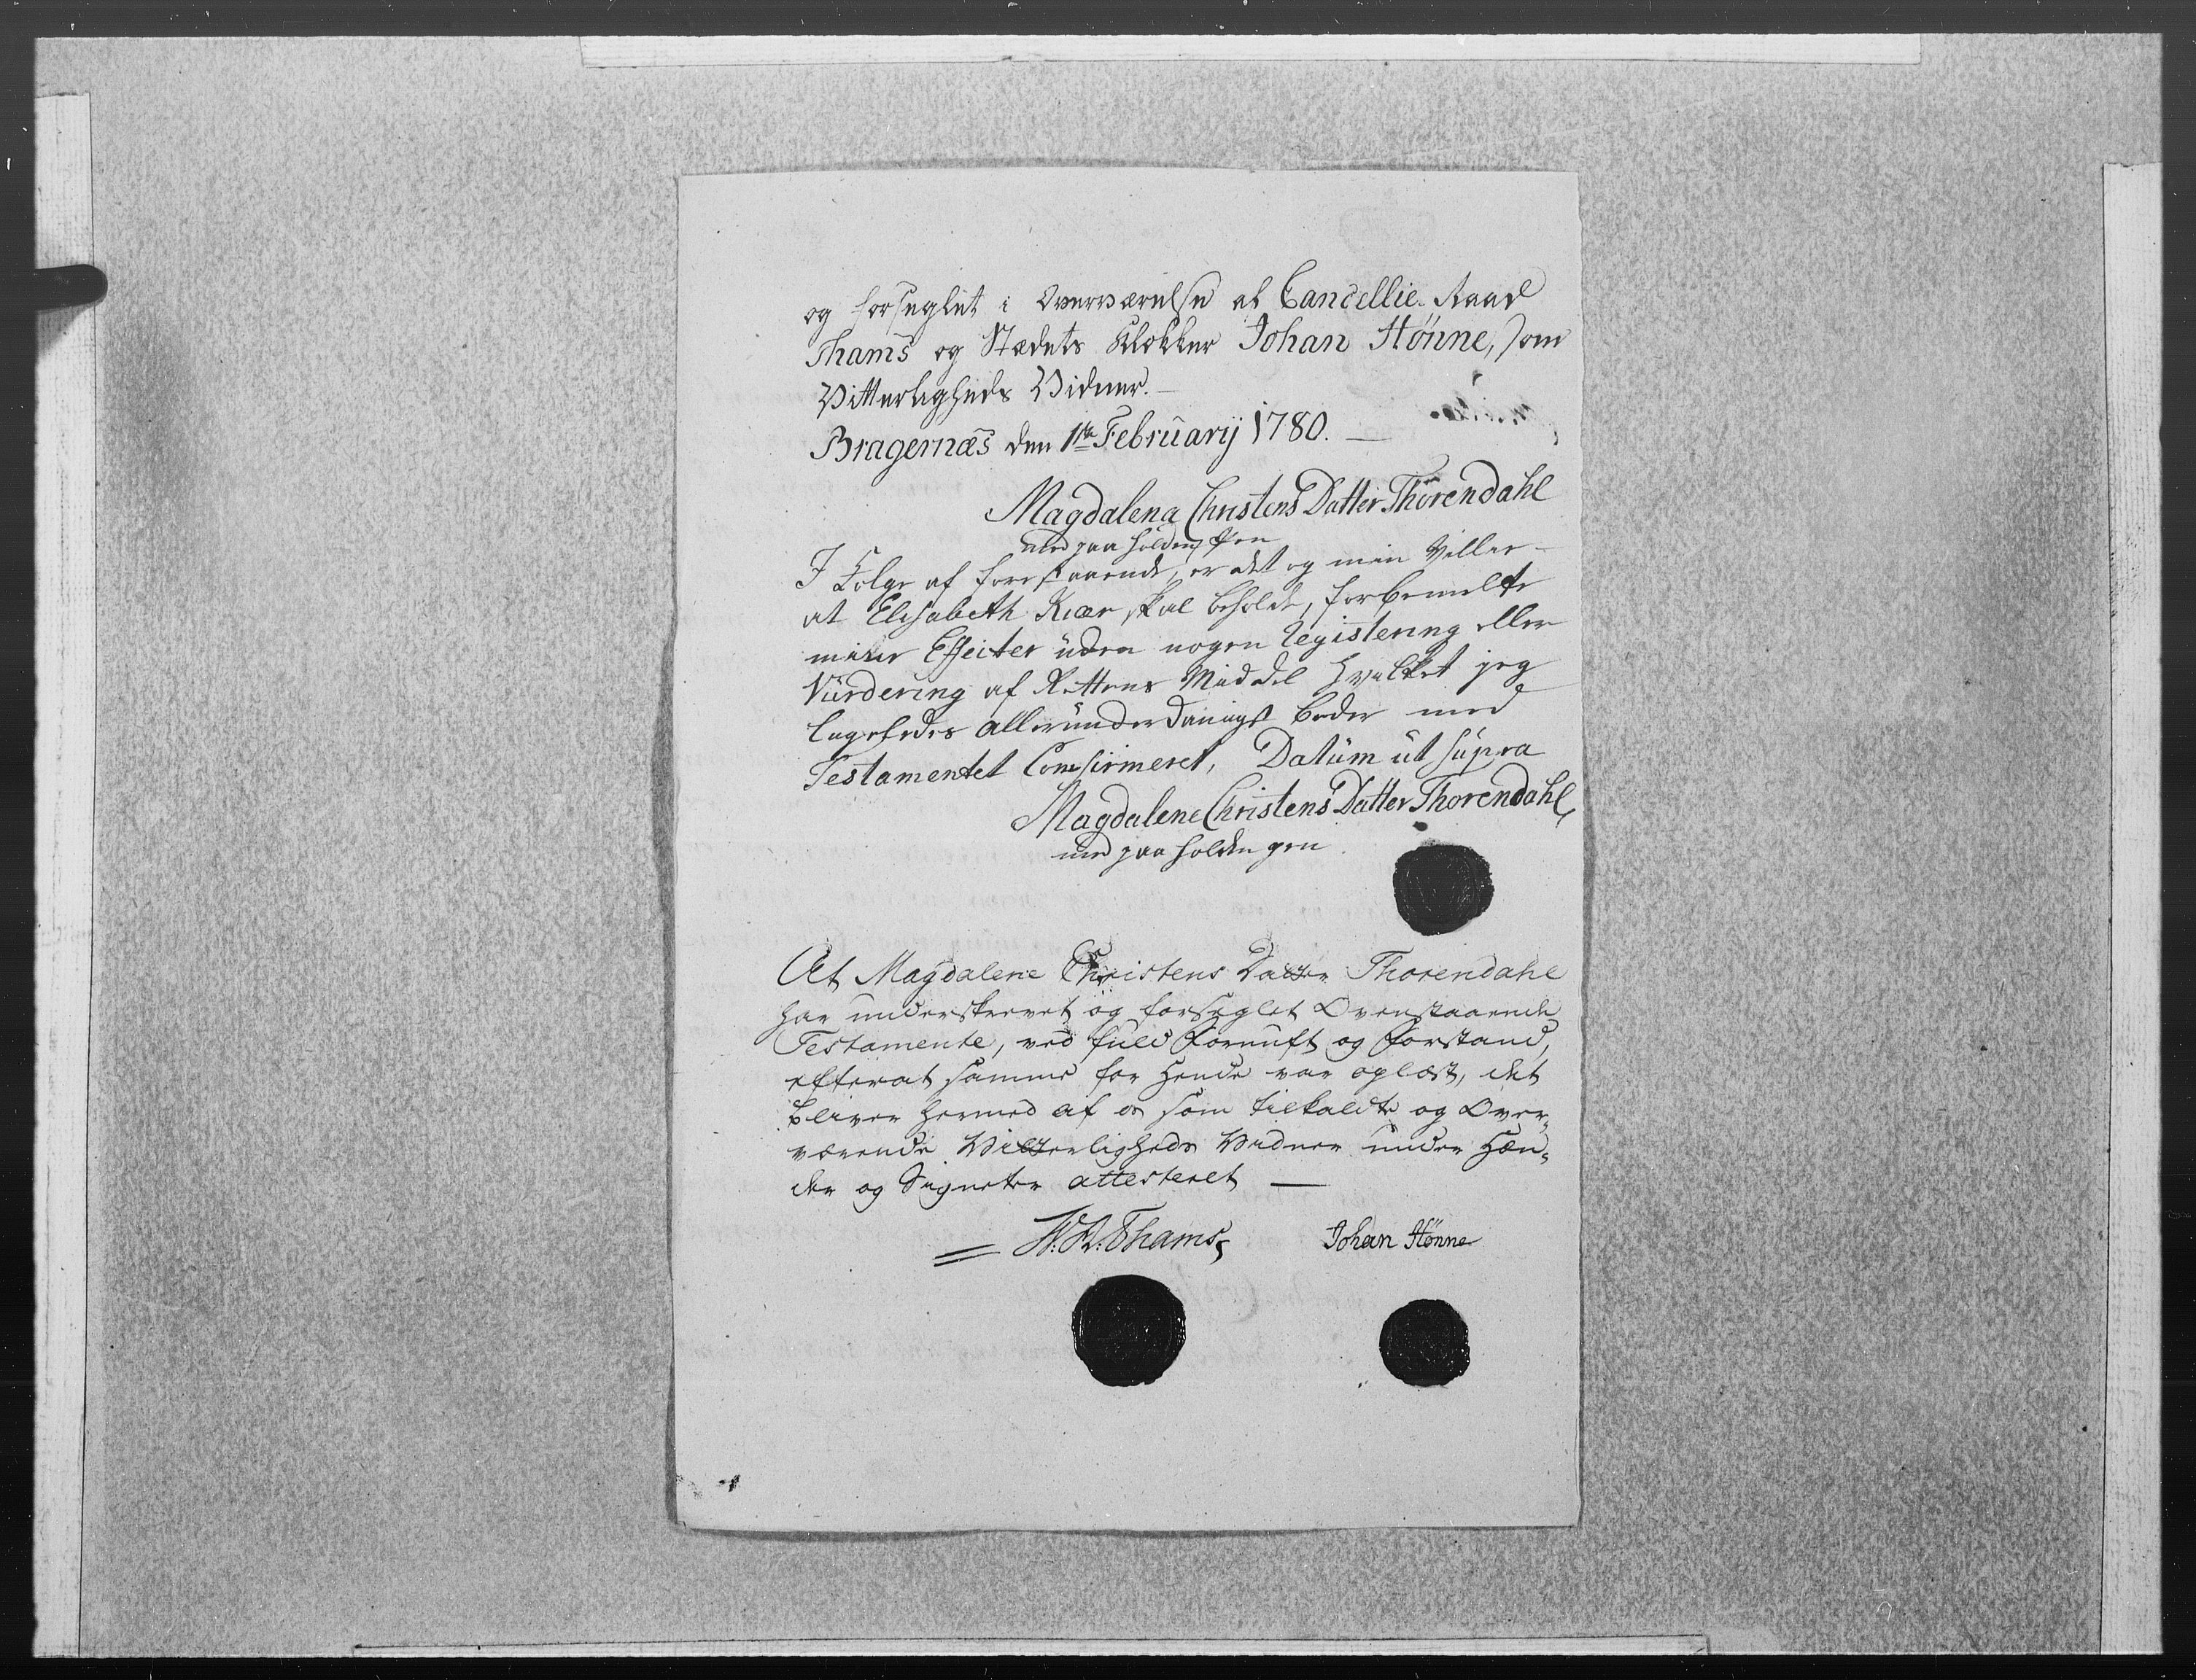 og forseglet i Overværelse af Cancellie-Raad
Thams og Stædets Klokker Johan Hönne, som
Vitterligheds Vidner. —
Bragernæs den 1te Februarij 1780. —
Magdalena Christens Datter Thorendahl
med paa holden Pen
I Følge af forestaaende, er det og min Villie
at Elisabeth Kiær skal beholde, forbemelte
mine Effecter uden nogen Registering eller
Vurdering af Rettens Middel hvilket jeg
ligeledes allerunderdanigst beder med
Testamentet Confirmeret, Datum ut supra
Magdalene Christens Datter Thorendahl
med paa holden pen
At Magdalene Christens Datter Thorendahl
har underskrevet og forseglet Ovenstaaende
Testamente, ved fuld Fornuft og Forstand,
efterat samme for Hende var oplæst, det
bliver hermed af os som tilkaldte og Over-
værende Vitterligheds Vidner under Hæn-
der og Signeter attesteret —
Johan Hönne